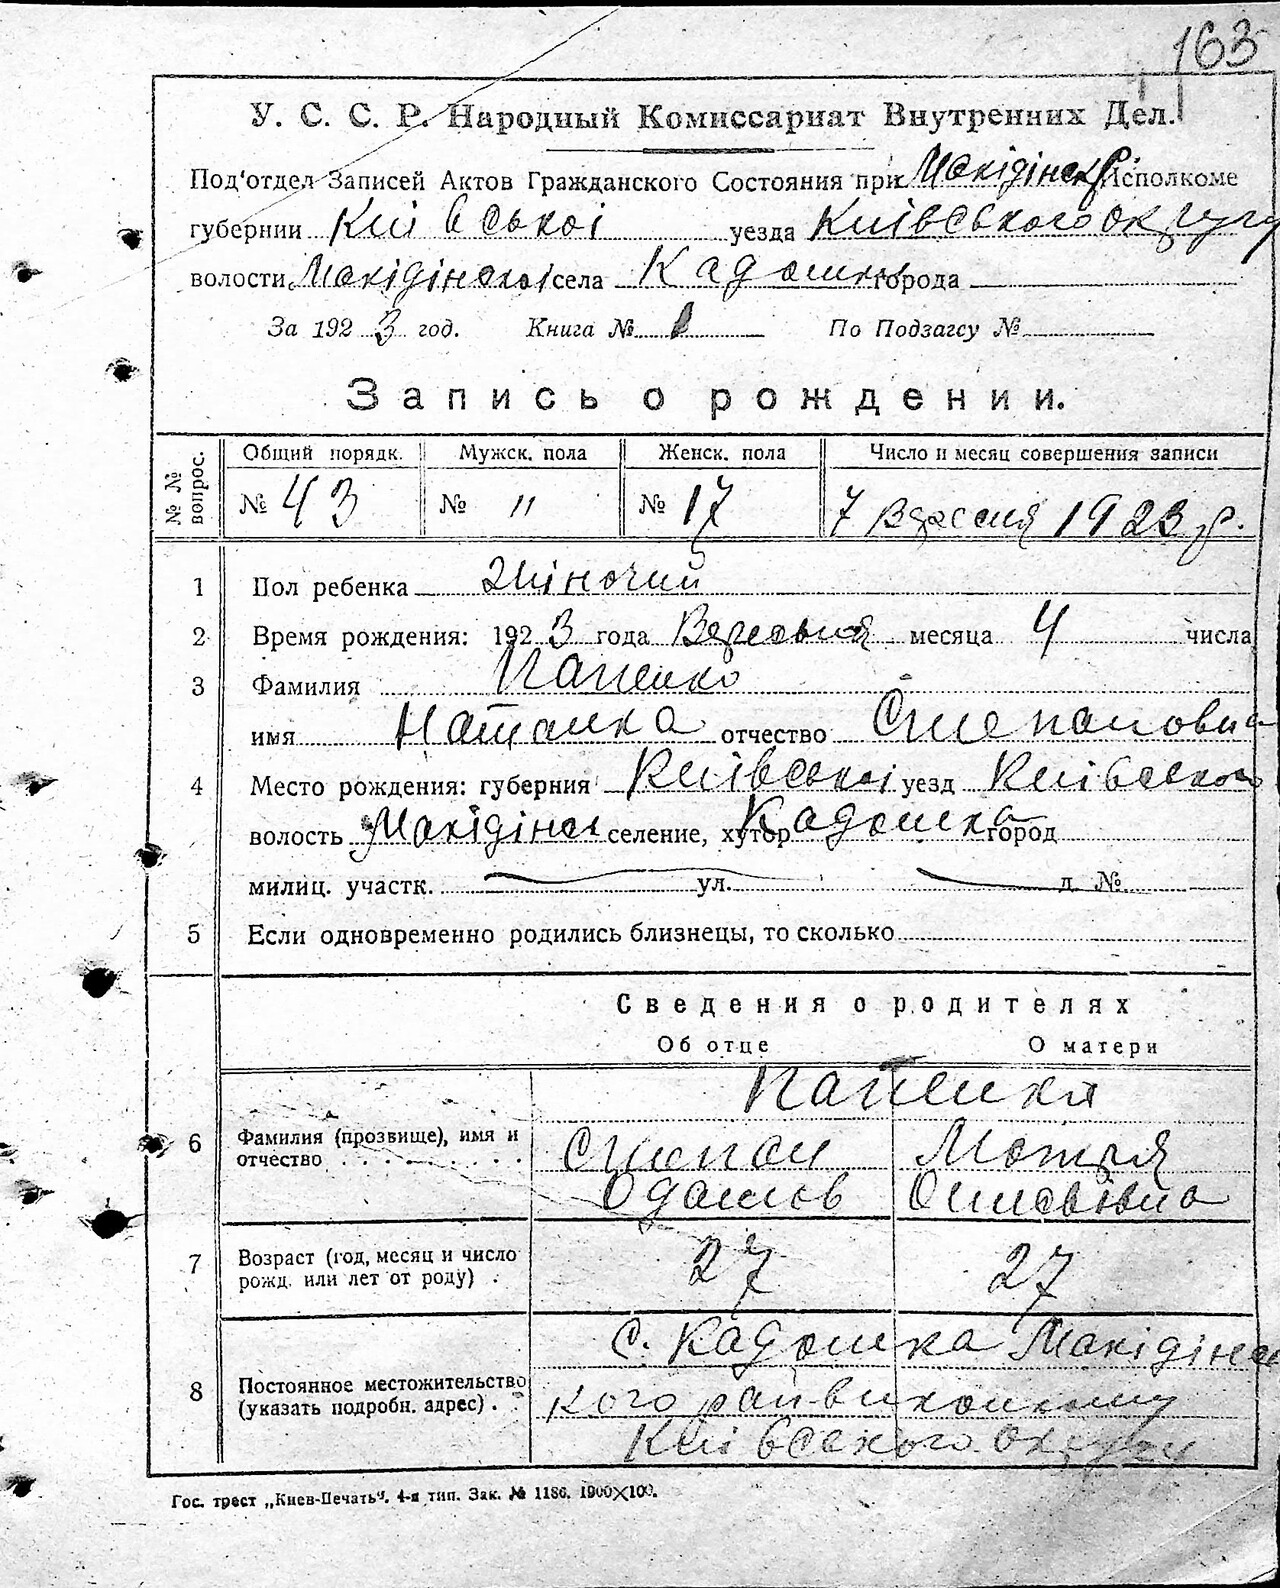 163
У. С. С. Р. Народный Комиссариат Внутренних Дел.
Под'отдел Записей Актов Гражданского Состояния при Исполкоме
губернии Київської уезда Київського округу
волости села города
За 1923 год. Книга № 1 По Подзагсу №
Запись о рождении.
№ № вопрос.
Общий порядк. Мужск. пола Женск. пола Число и месяц совершения записи
№ 43 № 11 № 17 7 Вересня 1923 р.
1 Пол ребенка Жіночий
2 Время рождения: 1923 года Вересня месяца 4 числа
3 Фамилия Папенко
имя Наталка отчество Степановна
4 Место рождения: губерния Київської уезд Київського
волость селение, хутор город
милиц. участк. ул. д. №
5 Если одновременно родились близнецы, то сколько
Сведения о родителях
Об отце О матери
Папенки
6 Фамилия (прозвище), имя и отчество
Степан Мотря
Одамов
7 Возраст (год, месяц и число рожд. или лет от роду) .
27 27
8 Постоянное местожительство (указать подробн. адрес) .
с.
кого райвиконкому
Київського округу
Гос. трест „Киев-Печать“. 4-я тип. Зак. № 1186. 1900×100.